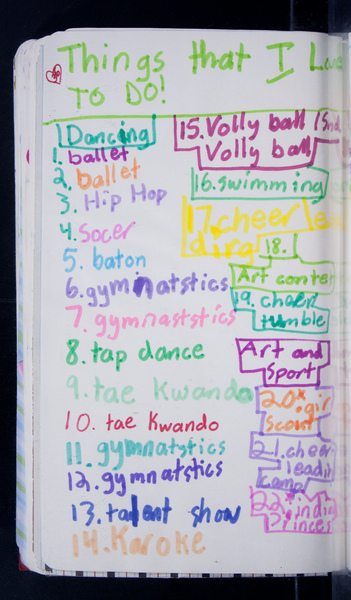 Things that I Love
TO DO!
Dancing
1. ballet
2. ballet
3. Hip Hop
4. Socer
5. baton
6. gymnatstics
7. gymnaststics
8. tap dance
9. tae Kwando
10. tae Kwando
11. gymnatstics
12. gymnatstics
13. talent show
14. Karoke
15. Volly ball
Volly ball
16. swimming
17. cheer
ding
18.
Art
19. cheer
tumble
Art and
Sport
20.
Scout
21. cheer
leadin
camp
22. india
Princes